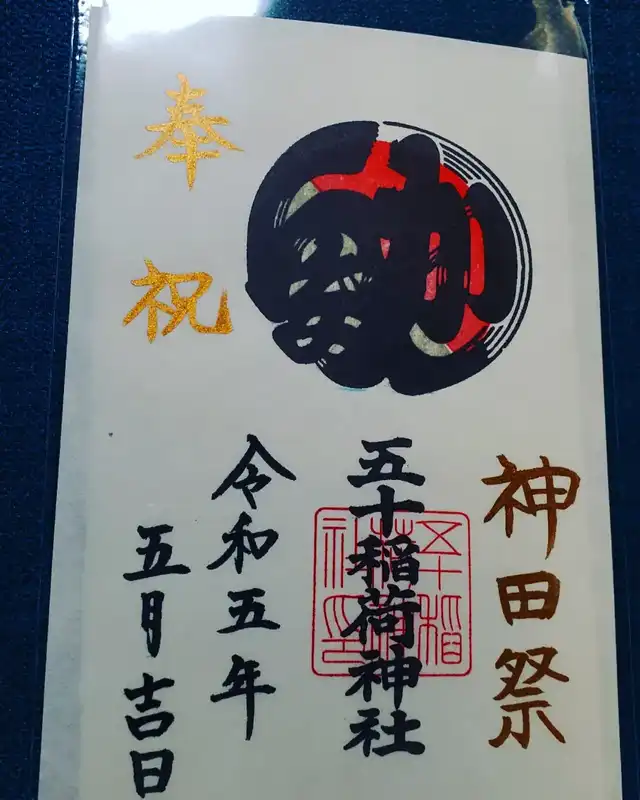 神田祭
五十稲荷神社
奉祝
令和五年
五月吉日